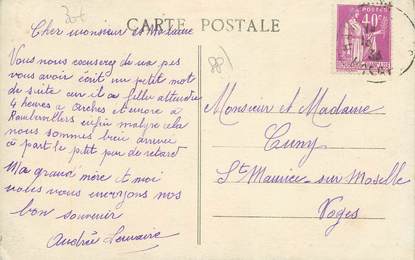 CARTE POSTALE
Cher monsieur et Madame
Vous nous excuserez de ne pas
vous avoir écrit un petit mot
de suite car il a fallu attendre
4 heures à Arches et encore à
Rambervillers enfin malgré cela
nous sommes bien arrivé
à part le petit peu de retard
Ma grand mère et moi
nous vous envoyons nos
bon souvenir
Andrée
Monsieur et Madame
Cuny
St Maurice-sur Moselle
Vosges
POSTES
40c